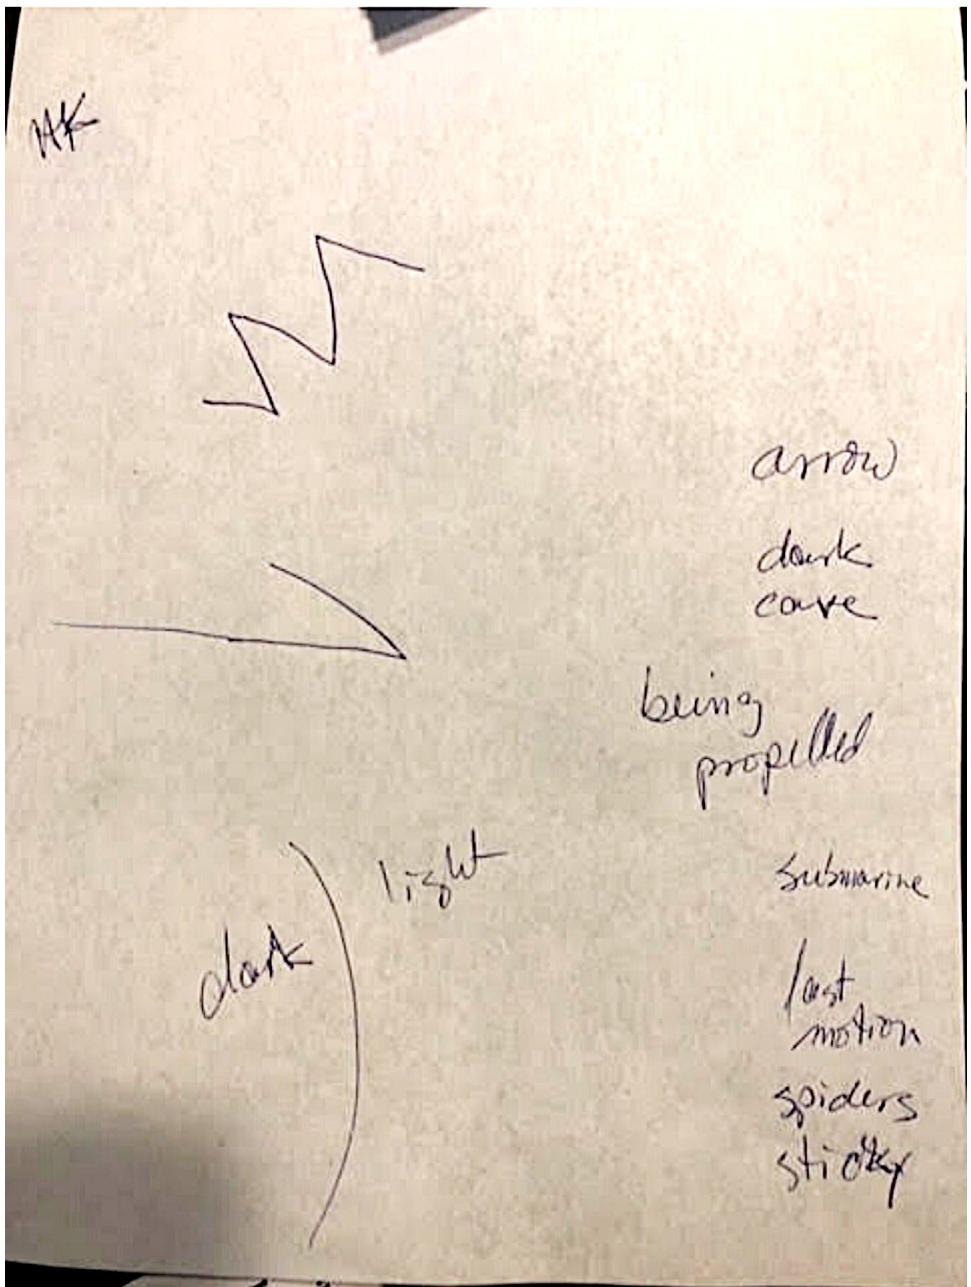 HK
arrow
dark
cave
being
propelled
light
submarine
dark
last
motion
spiders
sticky